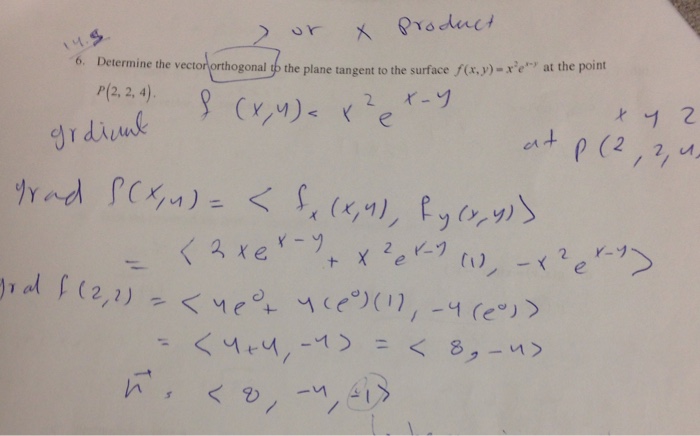 > or x product
14.8
6. Determine the vector orthogonal to the plane tangent to the surface f(x, y) = x²eˣ⁻ʸ at the point
P(2, 2, 4).
f (x,y) = x² e^x-y
grdient
x y z
at P (2, 2, 4
grad f(x,y) = < fx (x,y), fy (x,y)>
= < 2xe^x-y + x²e^x-y (1), -x²e^x-y>
grad f (2,2) = < 4e⁰ + 4(e⁰)(1), -4(e⁰)>
= <4+4, -4> = < 8, -4>
n⃗ = < 8, -4, -1>